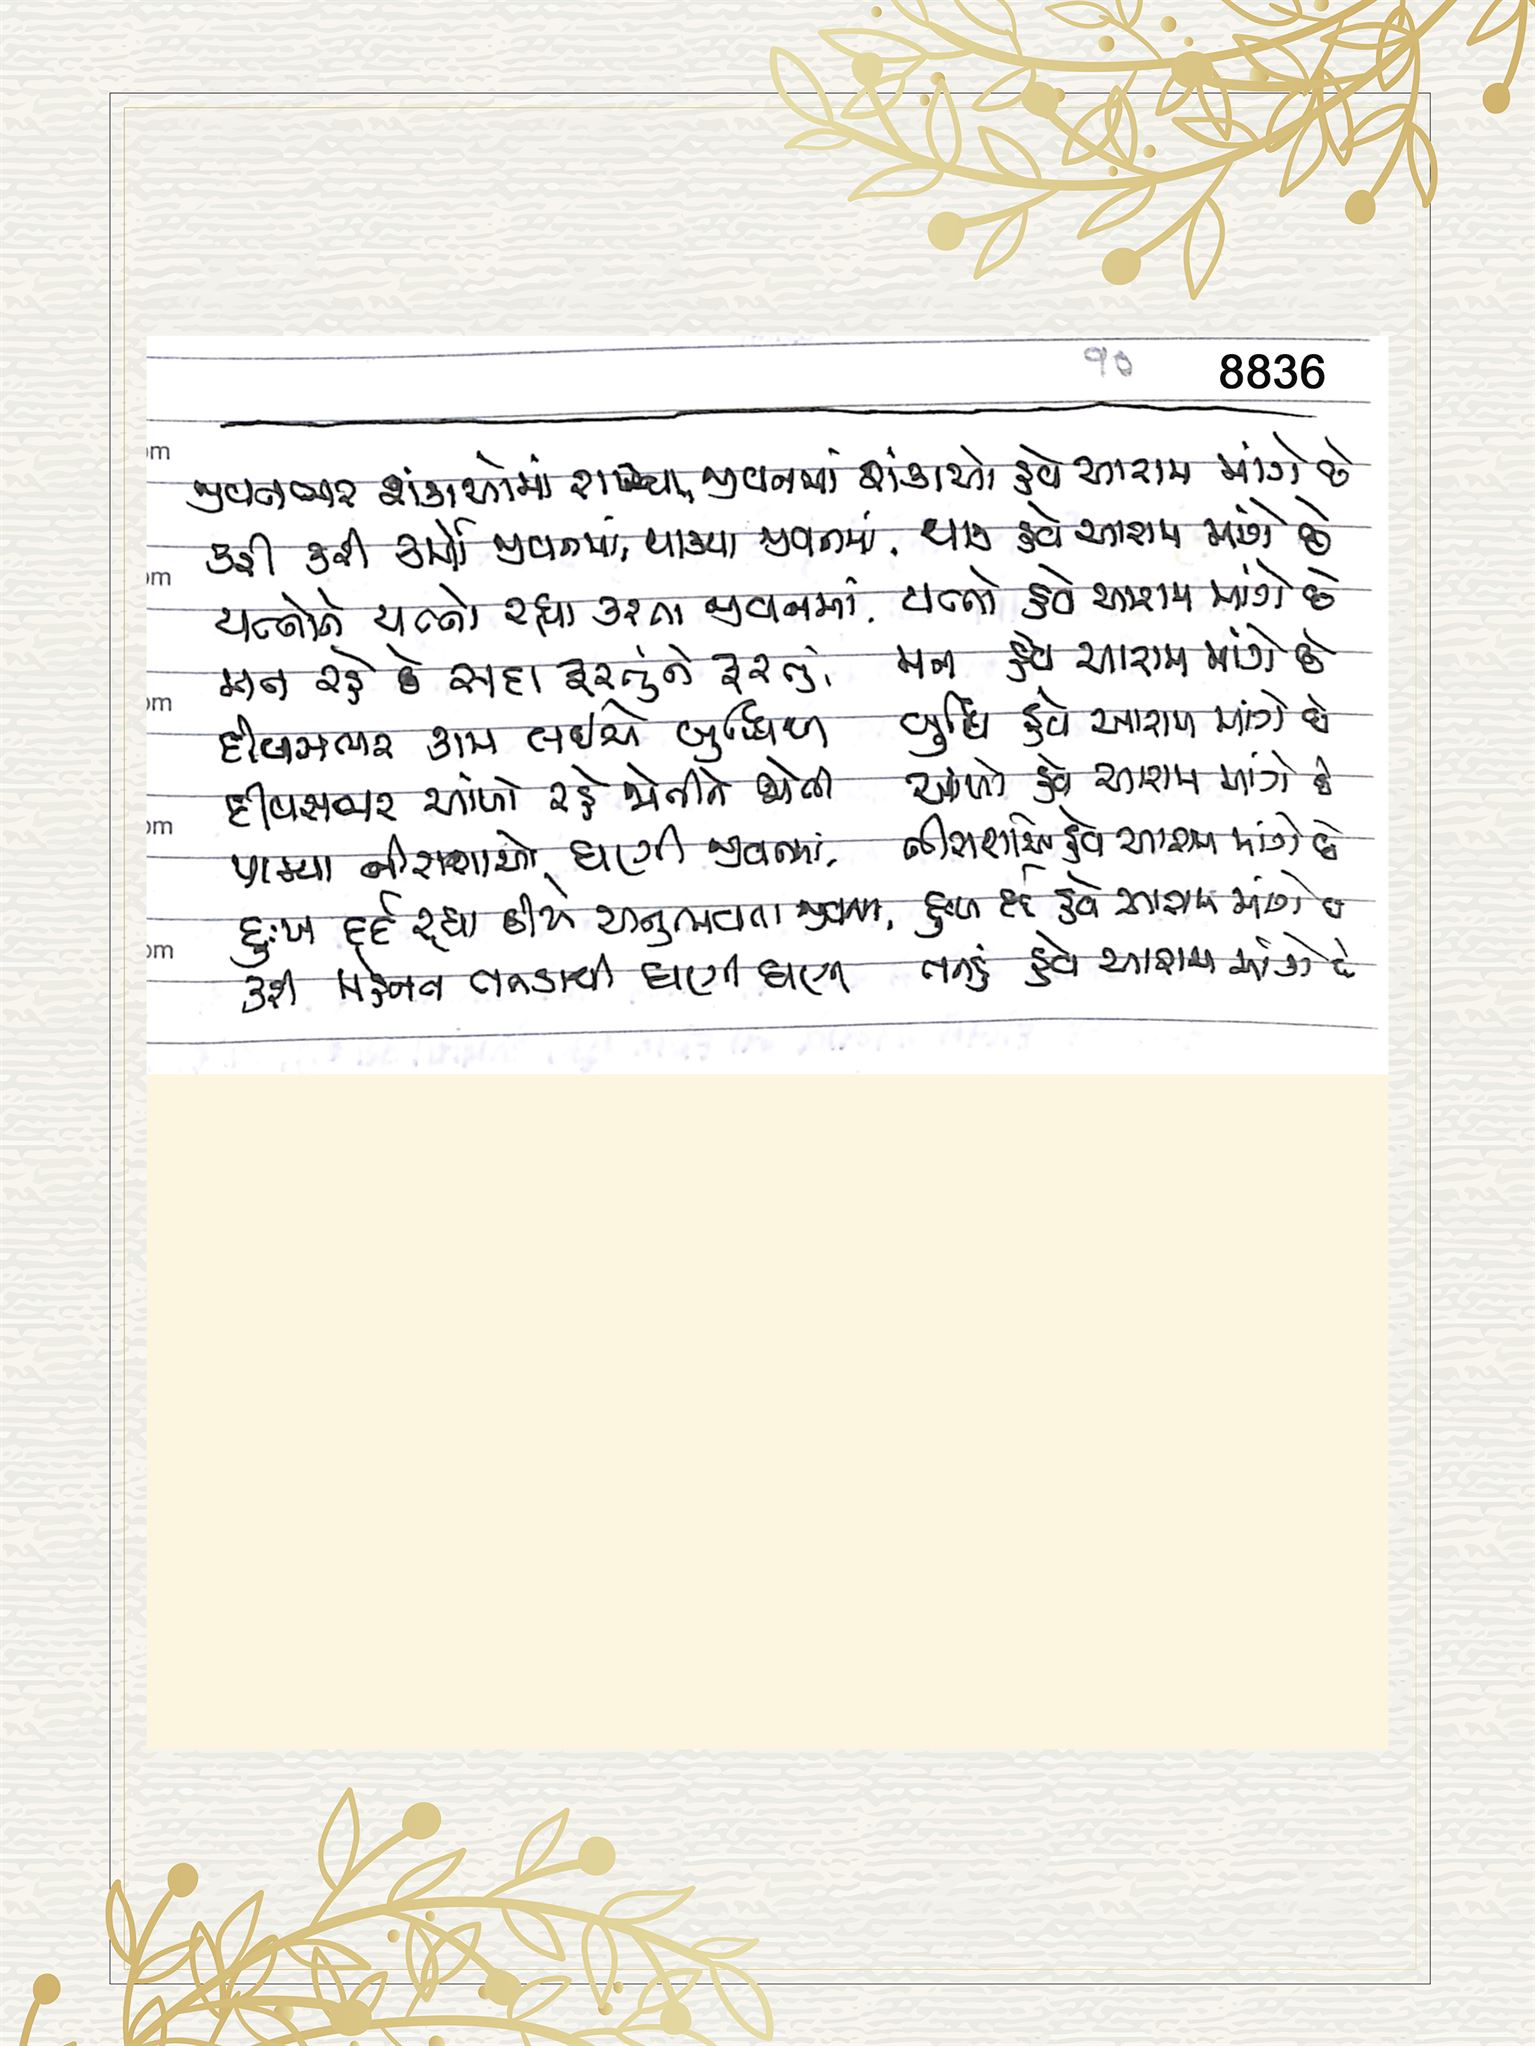 ૧૦ 8836
જીવનભર શંકાઓમાં રાચ્યા, જીવનમાં શંકાઓ હવે આરામ માંગે છે
કરી કરી કર્મો જીવનમાં, થાક્યા જીવનમાં, થાક હવે આરામ માંગે છે
યત્નોને યત્નો રહ્યા કરતા જીવનમાં, યત્નો હવે આરામ માંગે છે
મન રહે છે સદા ફરતુંને ફરતું, મન હવે આરામ માંગે છે
દીવસભર કામ લઈએ બુદ્ધિથી બુદ્ધિ હવે આરામ માંગે છે
દીવસભર આંખો રહે જોતીને જોતી આંખો હવે આરામ માંગે છે
પામ્યા નીરાશાઓ ઘણી જીવનમાં, નીરાશાઓ હવે આરામ માંગે છે
દુઃખ દર્દ રહ્યા હૈયે અનુભવતા જીવનમાં, દુઃખ દર્દ હવે આરામ માંગે છે
કરી મહેનત તનડાથી ઘણી ઘણી તનડું હવે આરામ માંગે છે